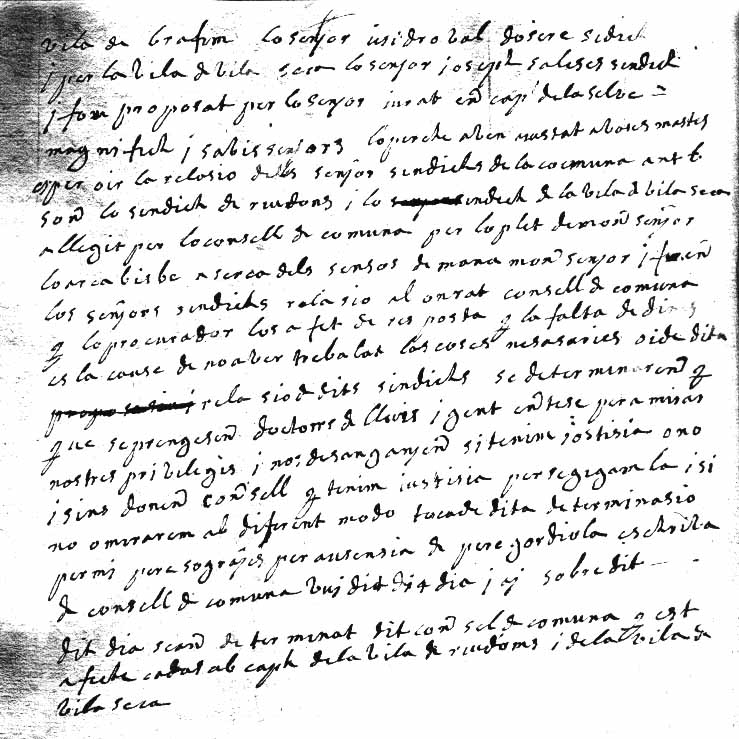 vila de brafim lo senjor isidro val dosere sidich
i per la vila d vila seca lo senjor joseph salises sindich
i fou proposat per lo senjor iurat en cap de la selve =
magnifich i sabis senjors lo perche aben aiustat a voses mastes
es per oir la relosio dells senjors sindichs de la cocmuna ant b
son lo sindich de riudoms i lo sindich de la vila d vila seca
allegit per lo consell de comuna per lo plet de mon senjor
lo arcabisbe aserca dels sensos demana mon senjor i fan
los senjors sindichs relasio al onrat consell de comuna
q lo procurador los a fet de resposta q la falta de dines
es la cause de no aver trebalat las coses nesasaries oide dita
relasio d dits sindichs se determinaren q
que se prengesen doctors d lleis i gent entese per a mirar
nostres privilegis i nos desanganjen si tenim iostisia o no
i sins donen consell q tenim iustisia per segigam la i si
no o mirarem ab diferent modo toca de dita determinasio
per mi pere sogranjes per ausensia de pere gordiola escrita
d consell d comuna vuj dit dia i aj sobredit
dit dia sean determinat dit consel de comuna q est
a fet cadas ab caph de la vila de riudoms i de la vila de
vila seca